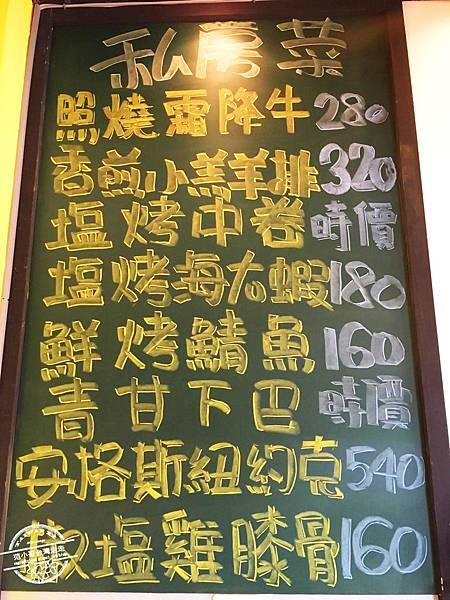 私房菜
照燒霜降牛280
香煎小羔羊排320
塩烤中卷時價
塩烤海大蝦180
鮮烤鯖魚160
青甘下巴時價
安格斯紐約克540
塩雞膝骨160